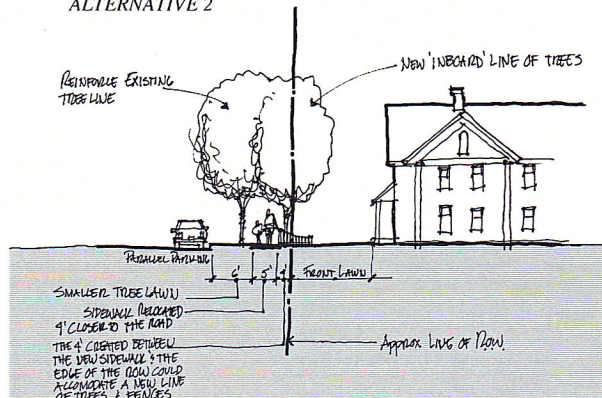 ALTERNATIVE 2
NEW 'INBOARD' LINE OF TREES
REINFORCE EXISTING
TREE LINE
PARALLEL PARKING
6' 5' 4' FRONT LAWN
SMALLER TREE LAWN
SIDEWALK RELOCATED
4' CLOSER TO THE ROAD
THE 4' CREATED BETWEEN
THE NEW SIDEWALK & THE
EDGE OF THE ROW COULD
ACCOMODATE A NEW LINE
OF TREES & FENCES
APPROX LINE OF ROW